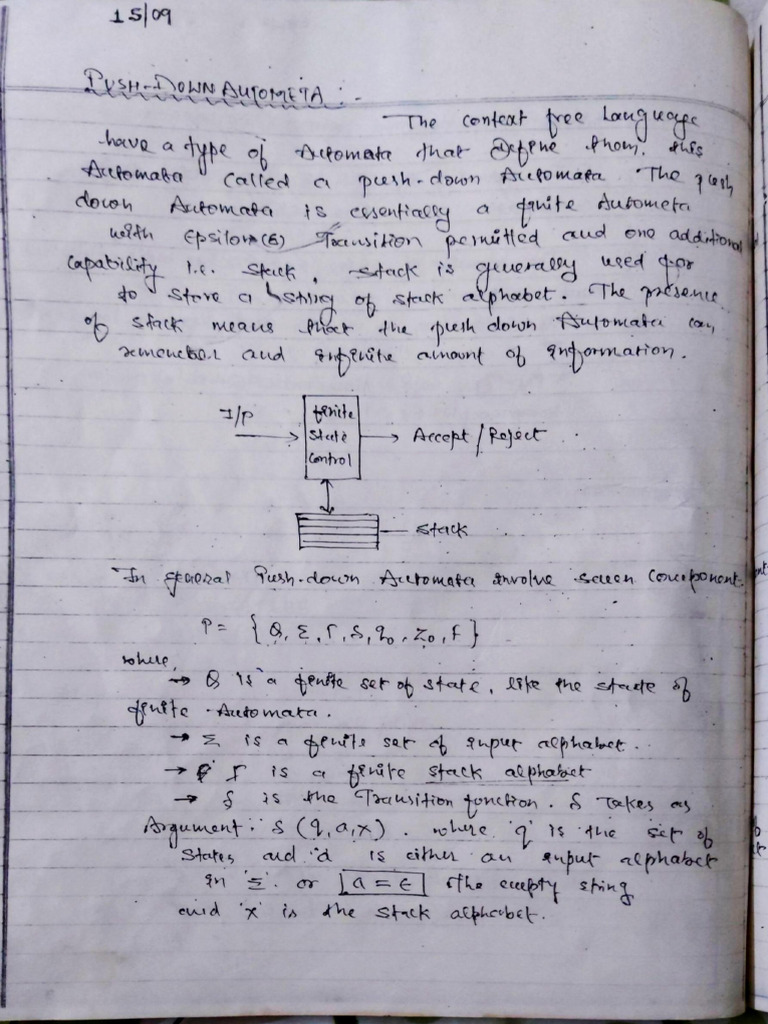 15/09
PUSH-DOWN AUTOMETA :-
The context free Language
have a type of Automata that Define them. this
Automata called a push-down Automata. The push
down Automata is essentially a finite Autometa
with Epsilon(ε) Transition permitted and one additional
capability i.e. stack. stack is generally used for
to store a string of stack alphabet. The presence
of stack means that the push down Automata can
remember and infinite amount of information.
I/P
finite
state
control
Accept/Reject
stack
In general Push-down Automata involve seven component
P = { Q, Σ, Γ, δ, q0, Z0, F }
where,
→ Q is a finite set of state, like the state of
finite Automata.
→ Σ is a finite set of input alphabet.
→ Γ is a finite stack alphabet
→ δ is the Transition function. δ Takes as
Argument: δ (q,a,x). where 'q' is the set of
states and 'a' is either an input alphabet
in 'Σ' or a = ε the empty string
and 'x' is the stack alphabet.